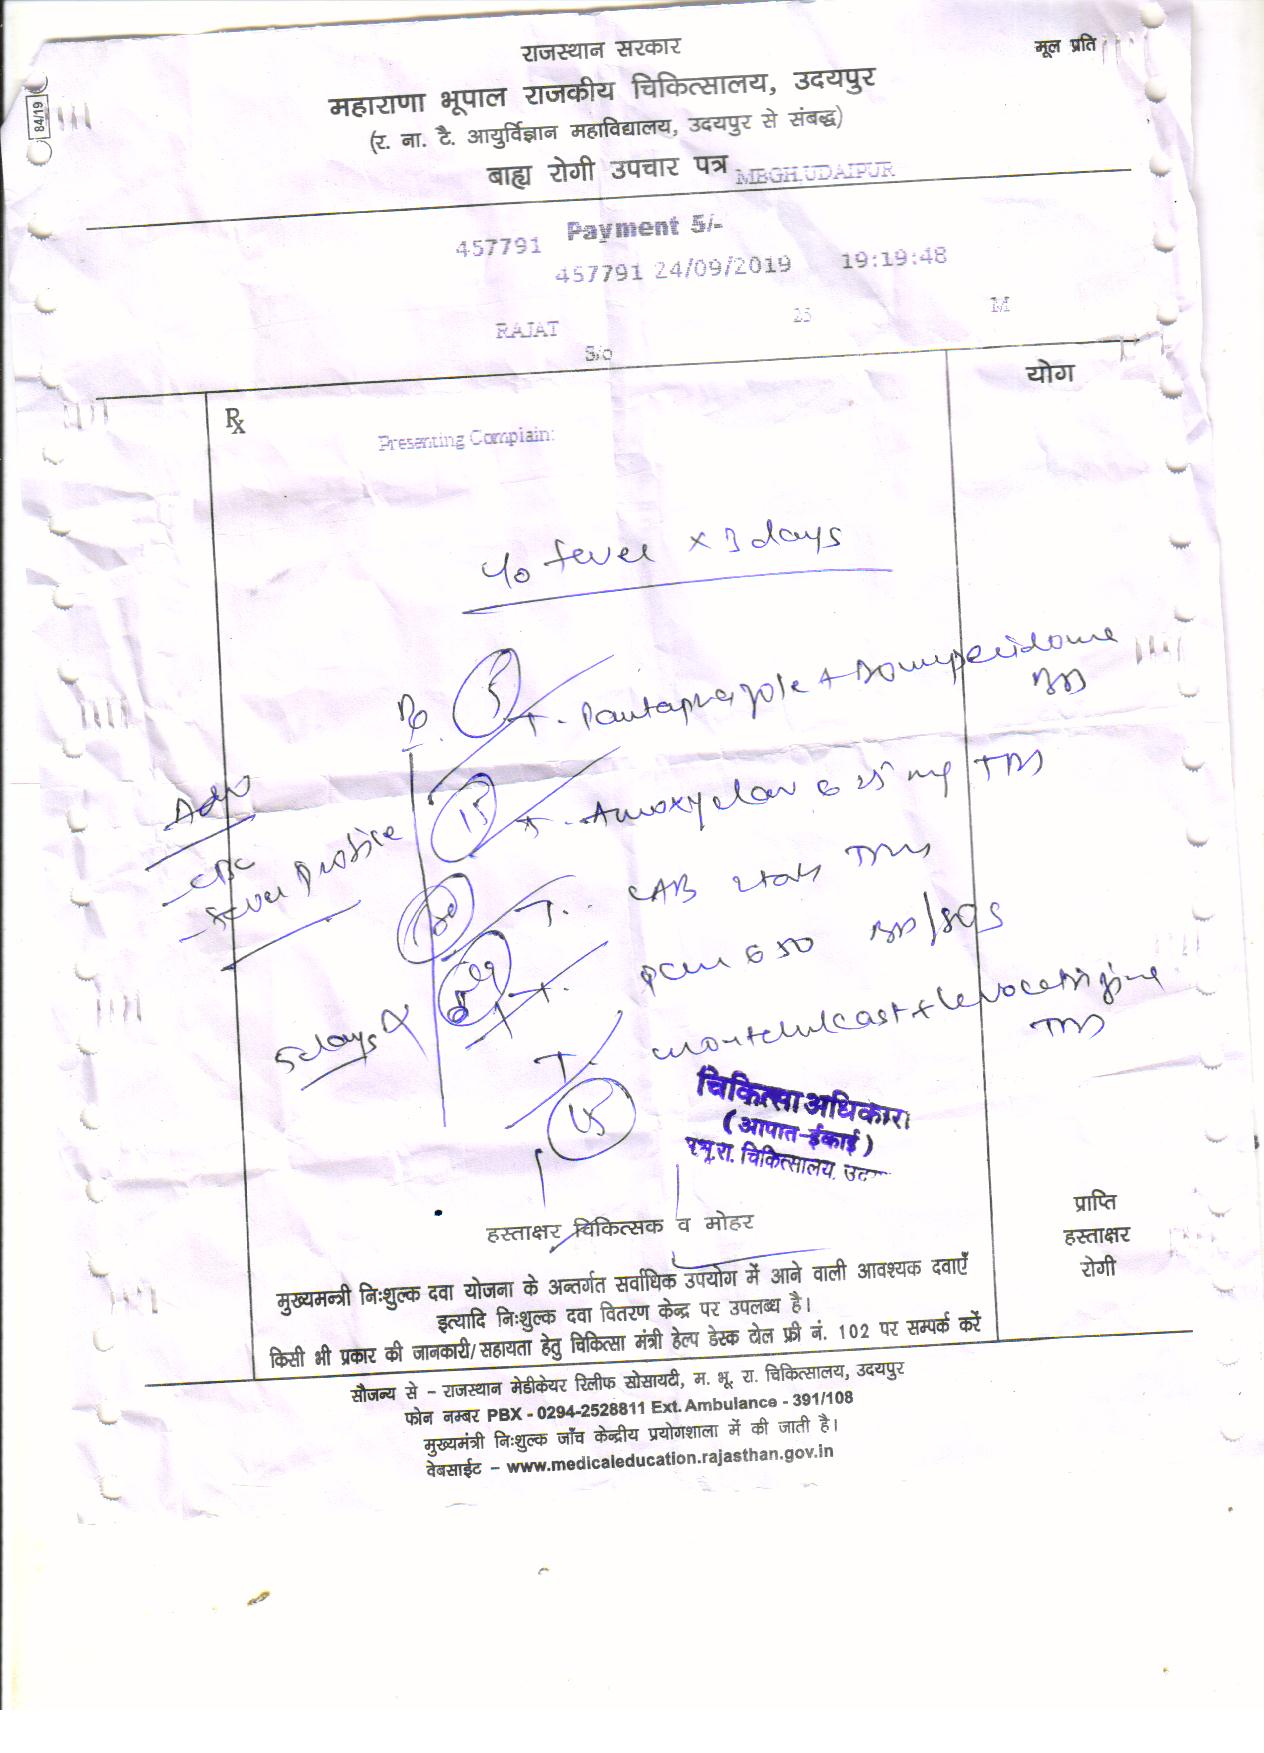 84/19
राजस्थान सरकार
मूल प्रति
महाराणा भूपाल राजकीय चिकित्सालय, उदयपुर
(र. ना. टै. आयुर्विज्ञान महाविद्यालय, उदयपुर से संबद्ध)
बाह्य रोगी उपचार पत्र MBGH,UDAIPUR
457791 Payment 5/-
457791 24/09/2019 19:19:48
RAJAT M
S/o
Rx
योग
Presenting Complain:
c/o fever x 3 days
T. Pantaprazole + Domperidome
BD
Adv
T. Amoxyclav 625 mg TDS
15
- CBC
- fever profile
T.
T. pcm 650 BD/SOS
5 days x
T. montelulcast + levocetrizine
15
चिकित्सा अधिकारी
(आपात-ईकाई)
चिकित्सालय,
हस्ताक्षर चिकित्सक व मोहर
प्राप्ति
हस्ताक्षर
रोगी
मुख्यमन्त्री निःशुल्क दवा योजना के अन्तर्गत सर्वाधिक उपयोग में आने वाली आवश्यक दवाएँ
इत्यादि निःशुल्क दवा वितरण केन्द्र पर उपलब्ध है।
किसी भी प्रकार की जानकारी/सहायता हेतु चिकित्सा मंत्री हेल्प डेस्क टोल फ्री नं. 102 पर सम्पर्क करें
सौजन्य से – राजस्थान मेडीकेयर रिलीफ सोसायटी, म. भू. रा. चिकित्सालय, उदयपुर
फोन नम्बर PBX - 0294-2528811 Ext. Ambulance - 391/108
मुख्यमंत्री निःशुल्क जाँच केन्द्रीय प्रयोगशाला में की जाती है।
वेबसाईट – www.medicaleducation.rajasthan.gov.in